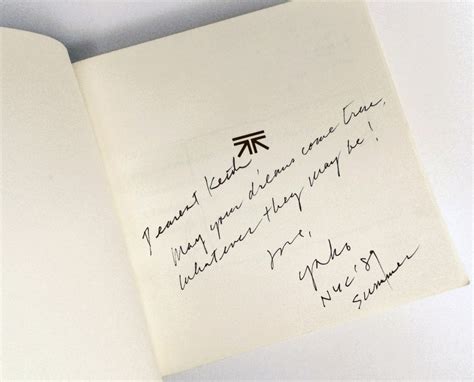 Dearest Keith
May your dreams come true,
Whatever they may be!
love,
yoko
NYC '89
Summer